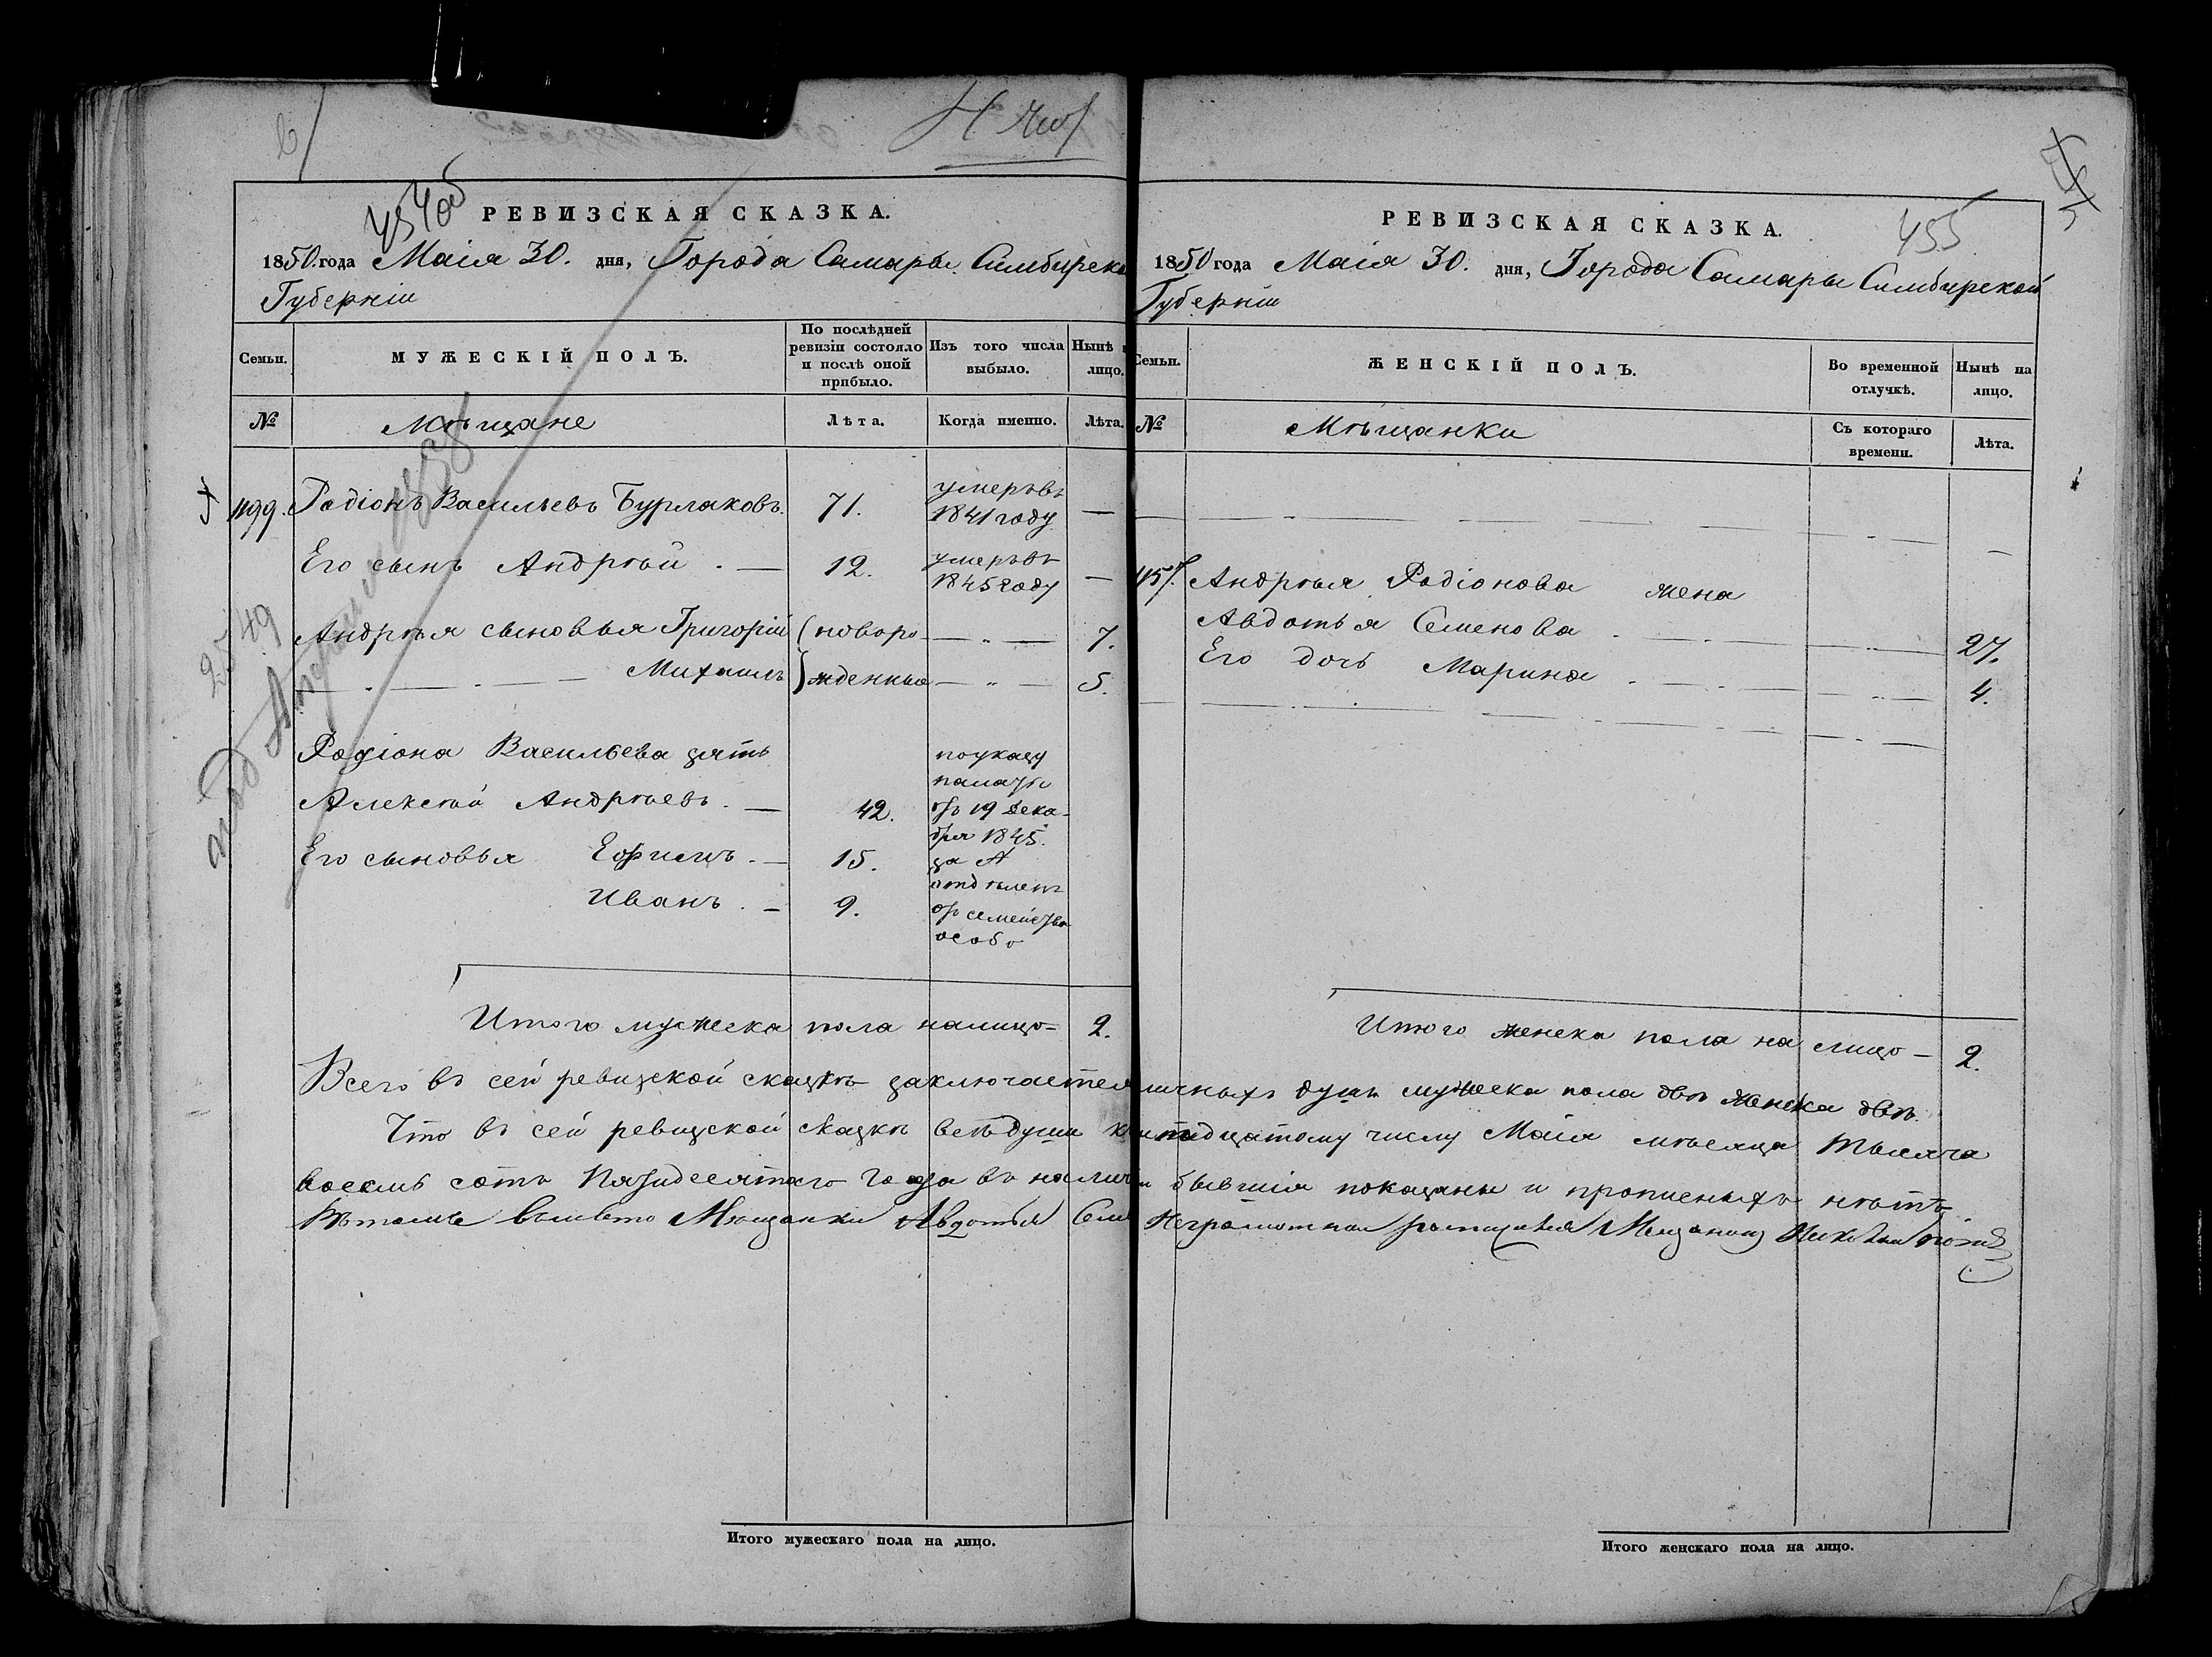 454об
РЕВИЗСКАЯ СКАЗКА.
1850. года Маія 30. дня, Города Самары Симбирско
Губерніи
Семьи.
МУЖЕСКІЙ ПОЛЪ.
По послѣдней ревизіи состояло и послѣ оной прибыло.
Изъ того числа выбыло.
Нынѣ н лицо.
№
Мѣщане
Лѣта.
Когда именно.
Лѣта.
1199. Родіонъ Васильевъ Бурлаковъ. 71. умеръ въ 1841 году —
Его сынъ Андрѣй . — 12. умеръ въ 1845 году —
Андрѣя сыновья Григорій (новоро — „ — 7.
— „ — Михаилъ )жденные — „ — 5.
Родіона Васильева зять
Алексѣй Андрѣевъ . — 42.
Его сыновья Ефимъ . — 15.
Иванъ . — 9.
по указу
палаты
отъ 19 Дека-
бря 1845.
за №
отдѣленъ
отъ семейства
особо
Итого мужеска пола налицо — 2.
РЕВИЗСКАЯ СКАЗКА.
455
1850 года Маія 30. дня, Города Самары Симбирской
Губерніи
Семьи.
ЖЕНСКІЙ ПОЛЪ.
Во временной отлучкѣ.
Нынѣ на лицо.
№
Мѣщанки
Съ котораго времени.
Лѣта.
Андрѣя Родіонова жена
Авдотья Семенова . — „ — 27.
Его дочь Марина . — „ — 4.
Итого женска пола на лицо — 2.
Всего въ сей ревизской сказкѣ заключается личныхъ душъ мужеска пола двѣ женска двѣ.
Что въ сей ревизской сказкѣ всѣ души к тридцатому числу Маія мѣсяца тысяча
восемь сотъ пятидесятаго года въ налич и бывшія показаны и прописныхъ нѣтъ
Въ томъ вмѣсто Мѣщанки Авдотьи Сем Неграмотной росписался Мещанинъ
Итого мужескаго пола на лицо.
Итого женскаго пола на лицо.